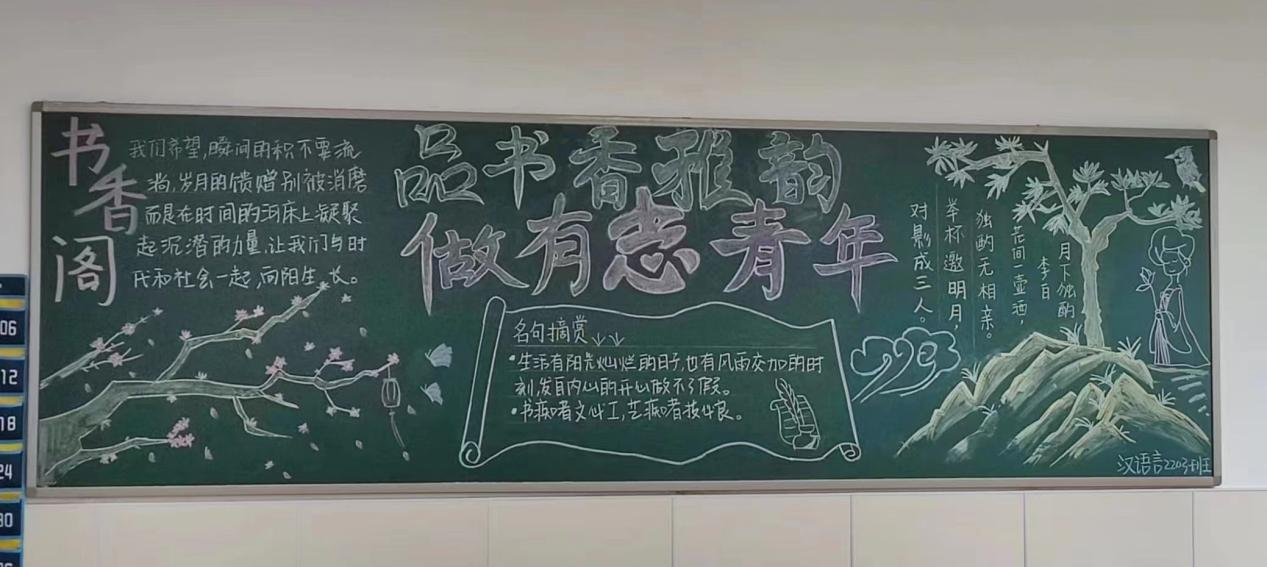 书香阁
我们希望,瞬间的积不要流
淌,岁月的馈赠别被消磨
而是在时间的河床上凝聚
起沉潜的力量,让我们与时
代和社会一起,向阳生长。
品书香雅韵
做有志青年
名句摘赏
•生活有阳光灿烂的日子,也有风雨交加的时
刻,发自内心的开心做不了假。
•书痴者文必工,艺痴者技必良。
月下独酌
李白
花间一壶酒,
独酌无相亲。
举杯邀明月,
对影成三人。
汉语言2203班
06
12
18
24
30